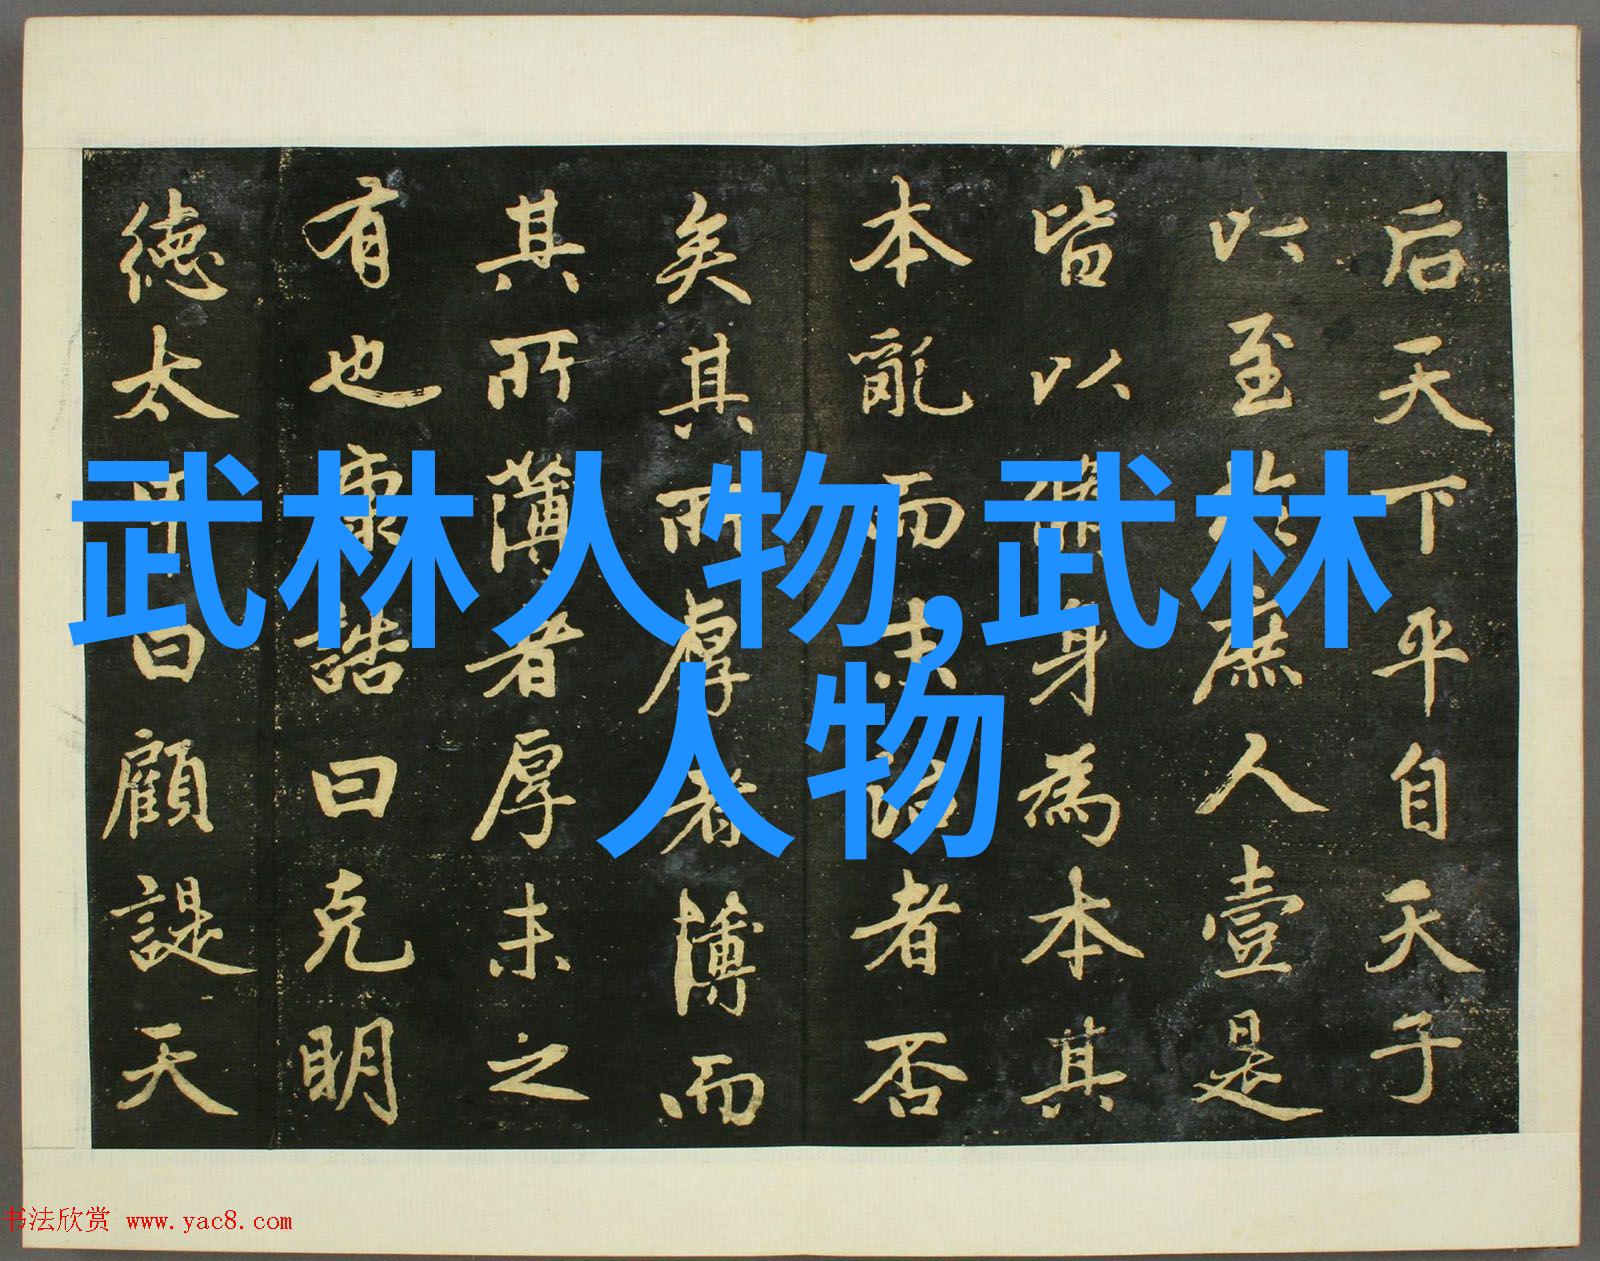 后天下平自天子
以至於庶人壹是
皆以脩身為本其
本亂而末治者否
矣其所厚者薄而
其所薄者厚未之
有也康誥曰克明
德太甲曰顧諟天
武林人物,武林
人物
书法欣赏 www.yac8.com